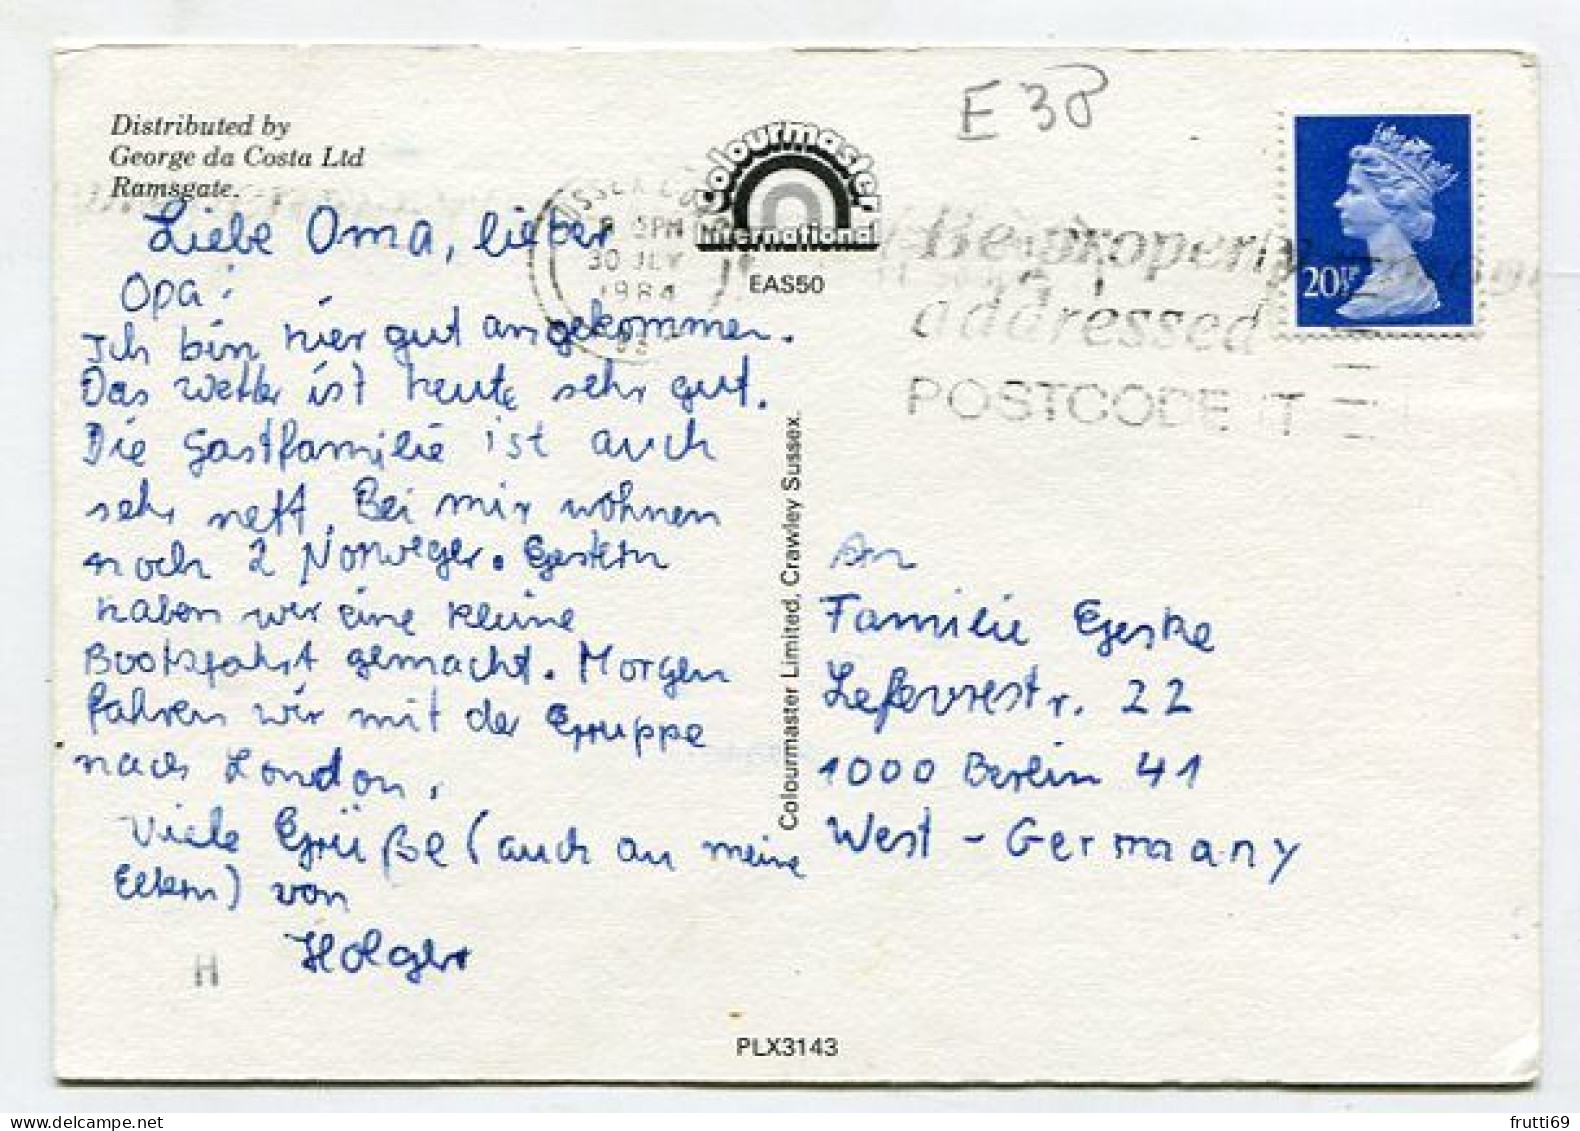 Distributed by
George da Costa Ltd
Ramsgate.
Liebe Oma, lieber
Opa!
Ich bin hier gut angekommen.
Das Wetter ist heute sehr gut.
Die Gastfamilie ist auch
sehr nett. Bei mir wohnen
noch 2 Norweger. Gestern
haben wir eine kleine
Bootsfahrt gemacht. Morgen
fahren wir mit der Gruppe
nach London.
Viele Grüße (auch an meine
Eltern) von
Holger
H
Colourmaster
International
EAS50
5PM
30 JLY
1984
E 38
Be properly
addressed
POSTCODE IT
20½P
Colourmaster Limited, Crawley Sussex.
An
Familie Geske
Lefevrestr. 22
1000 Berlin 41
West - Germany
PLX3143
frutti69